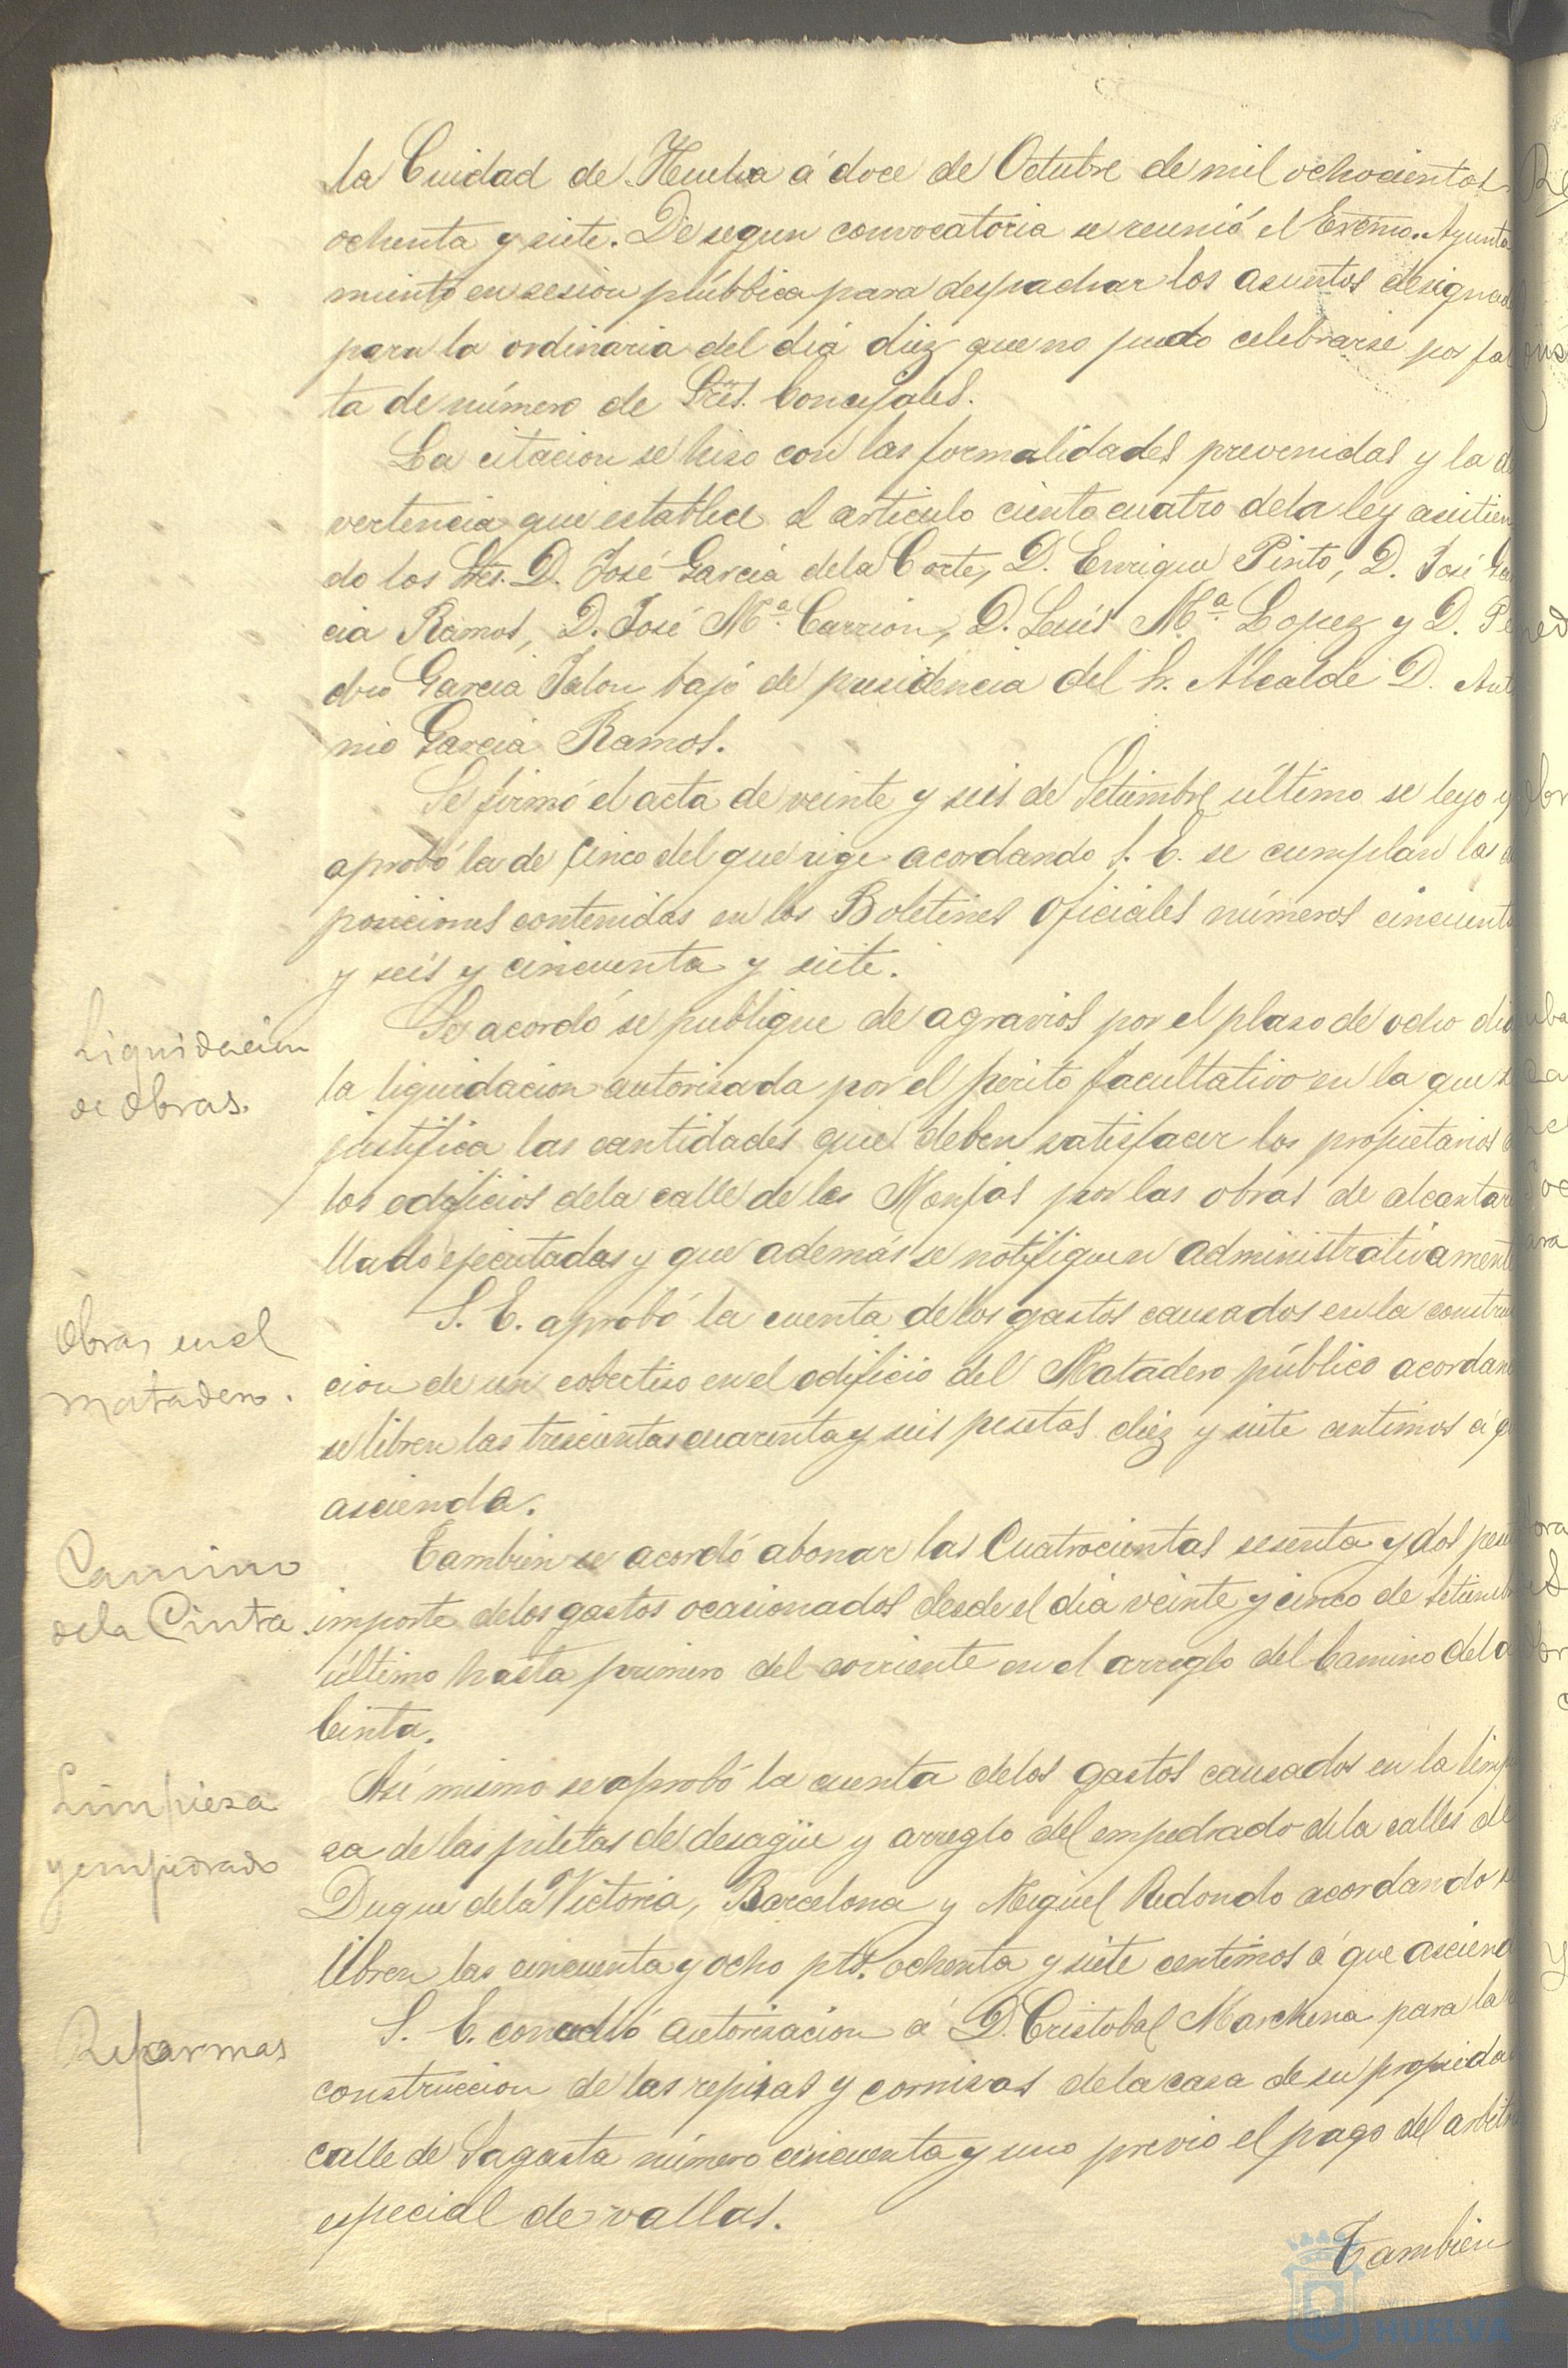 la Cuidad de Huelva á doce de Octubre de mil ochocientos
ochenta y siete. De segun convocatoria se reunió el Excmo. Ayunta
miento en sesion públbica para despachar los asuntos designad
para la ordinaria del diá diez que no pudo celebrarse por fal
ta de número de Sres. Concejales.
La citacion se hiso con las formalidades prevenidas y la ad
vertencia que establece el articulo ciento cuatro dela ley asistien
do los Sres. D. José Garcia dela Corte, D. Enrique Pinto, D. José Gar
cia Ramos, D. José Mª. Carrion, D. Luis Mª. Lopez y D. Pe
dro Garcia Jalón bajó de presidencia del Sr. Alcalde D. Anto
nio Garcia Ramos.
Se firmó el acta de veinte y seis de Setiembre último se leyo y
aprobó la de cinco del que rige acordando S. E. se cumplan las
posiciones contenidas en los Boletines Oficiales números cincuenta
y seis y cincuenta y siete.
Liquidacion
de obras.
Se acordó se publique de agravios por el plaso de ocho dias
la liquidacion autorisada por el perito facultativo en la que s
justifica las cantidades que deben satisfacer los propietarios
los edificios dela calle de las Monjas por las obras de alcantari
llado ejecutadas y que además se notifiquen administrativamente
Obras en el
matadero.
S. E. aprobó la cuenta de los gastos causados en la construc
cion de un cobertiso en el edificio del Matadero público acordando
se libren las trescientas cuarenta y seis pesetas diez y siete centimos á q
ascienda.
Camino
dela Cinta.
Tambien se acordó abonar las Cuatrocientas sesenta y dos pese
importe delos gastos ocasionados desde el dia veinte y cinco de Setiembre
último hasta primero del corriente en el arreglo del Camino dela
Cinta.
Limpiesa
y empedrado
Asi mismo se aprobó la cuenta delos gastos causados en la limpi
sa de las piletas de desagüe y arreglo del empedrado dela calles del
Duque dela Victoria, Barcelona y Miguel Redondo acordando se
libren las cincuenta y ocho pts. ochenta y siete centimos á que asciend
Reformas
S. E. concedió autorisacion á D. Cristobal Marchena para la
construccion de las repisas y cornisas dela casa de su propiedad
calle de Sagasta número cincuenta y uno previo el pago del arbitri
especial de vallas.
Tambien
HUELVA